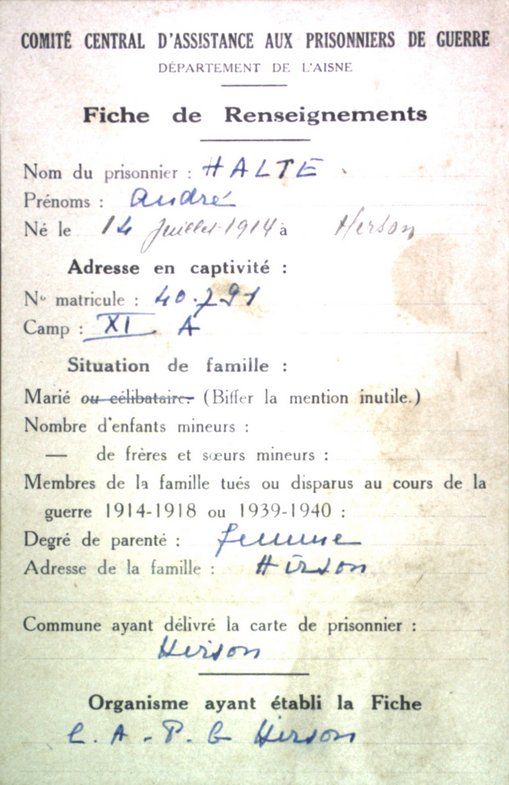 COMITÉ CENTRAL D'ASSISTANCE AUX PRISONNIERS DE GUERRE
DÉPARTEMENT DE L'AISNE
Fiche de Renseignements
Nom du prisonnier : HALTE
Prénoms : André
Né le 14 Juillet 1914 à Herson
Adresse en captivité :
N° matricule : 40.791
Camp : XI A
Situation de famille :
Marié ou célibataire. (Biffer la mention inutile.)
Nombre d'enfants mineurs :
— de frères et sœurs mineurs :
Membres de la famille tués ou disparus au cours de la
guerre 1914-1918 ou 1939-1940 :
Degré de parenté : femme
Adresse de la famille : Hirson
Commune ayant délivré la carte de prisonnier :
Hirson
Organisme ayant établi la Fiche
C. A. P. G Hirson